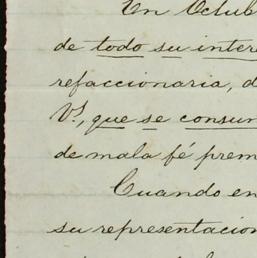 En Octub
de todo su inter
refaccionaria, d
Vs, que se consum
de mala fé prem
Cuando en
su representacion